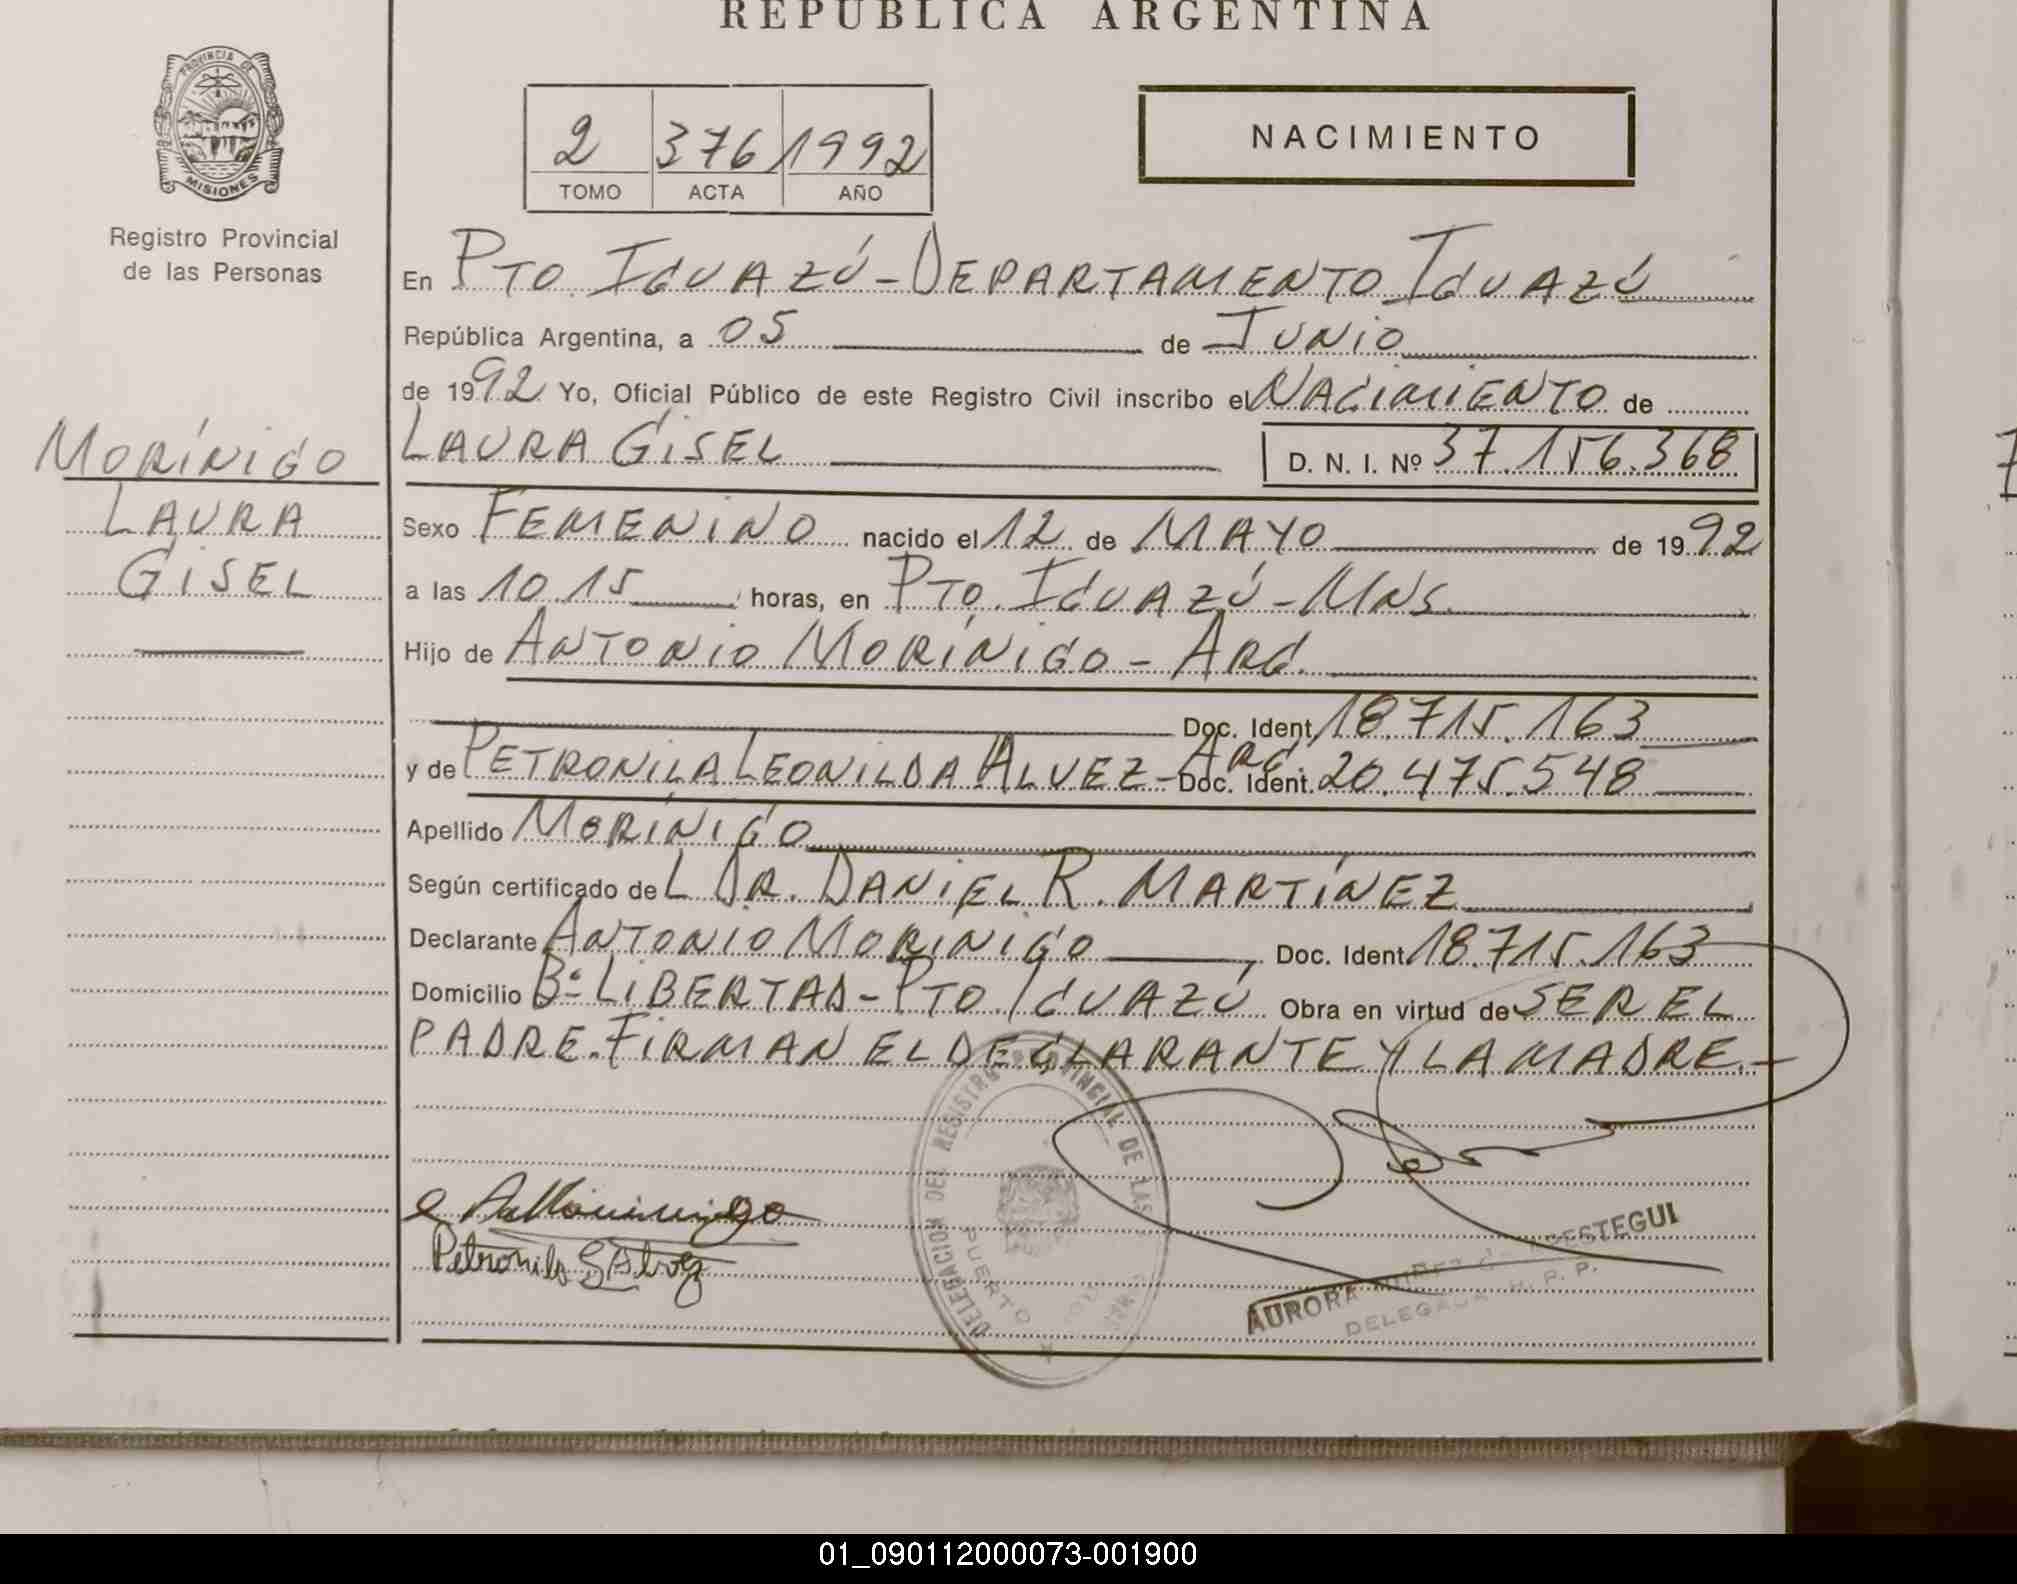 REPUBLICA ARGENTINA
PROVINCIA DE
MISIONES
Registro Provincial
de las Personas
2 376 1992
TOMO ACTA AÑO
NACIMIENTO
En PTO. IGUAZÚ - DEPARTAMENTO IGUAZÚ
República Argentina, a 05 de JUNIO
de 1992 Yo, Oficial Público de este Registro Civil inscribo el NACIMIENTO de
MORÍNIGO
LAURA
GISEL
LAURA GISEL D. N. I. Nº 37.156.368
Sexo FEMENINO nacido el 12 de MAYO de 1992
a las 10.15 horas, en PTO. IGUAZÚ - MNS.
Hijo de ANTONIO MORÍNIGO - ARG.
Doc. Ident. 18.715.163
y de PETRONILA LEONILDA ALVEZ - ARG. Doc. Ident. 20.475.548
Apellido MORÍNIGO
Según certificado de L DR. DANIEL R. MARTÍNEZ
Declarante ANTONIO MORINIGO, Doc. Ident. 18.715.163
Domicilio Bº LIBERTAD - PTO. IGUAZÚ Obra en virtud de SER EL
PADRE. FIRMAN EL DECLARANTE Y LA MADRE.-
DELEGACION DEL REGISTRO PROVINCIAL DE LAS
PUERTO
Petronila Alvez
AURORA
DELEGADA R. P. P.
01_090112000073-001900